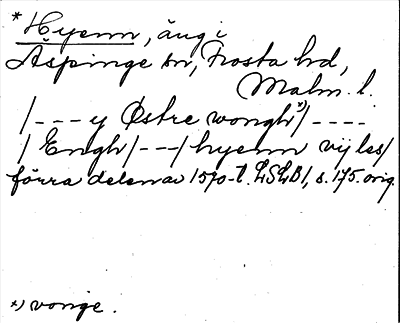 * Hyenn, äng i
Äspinge sn, Frosta hd,
Malm. l.
/--- y Østre wongh*)/----
/ Engh/---/hyenn vij les/
förra delen av 1570-t. LSLB1, s. 175. orig.
*) vonge.